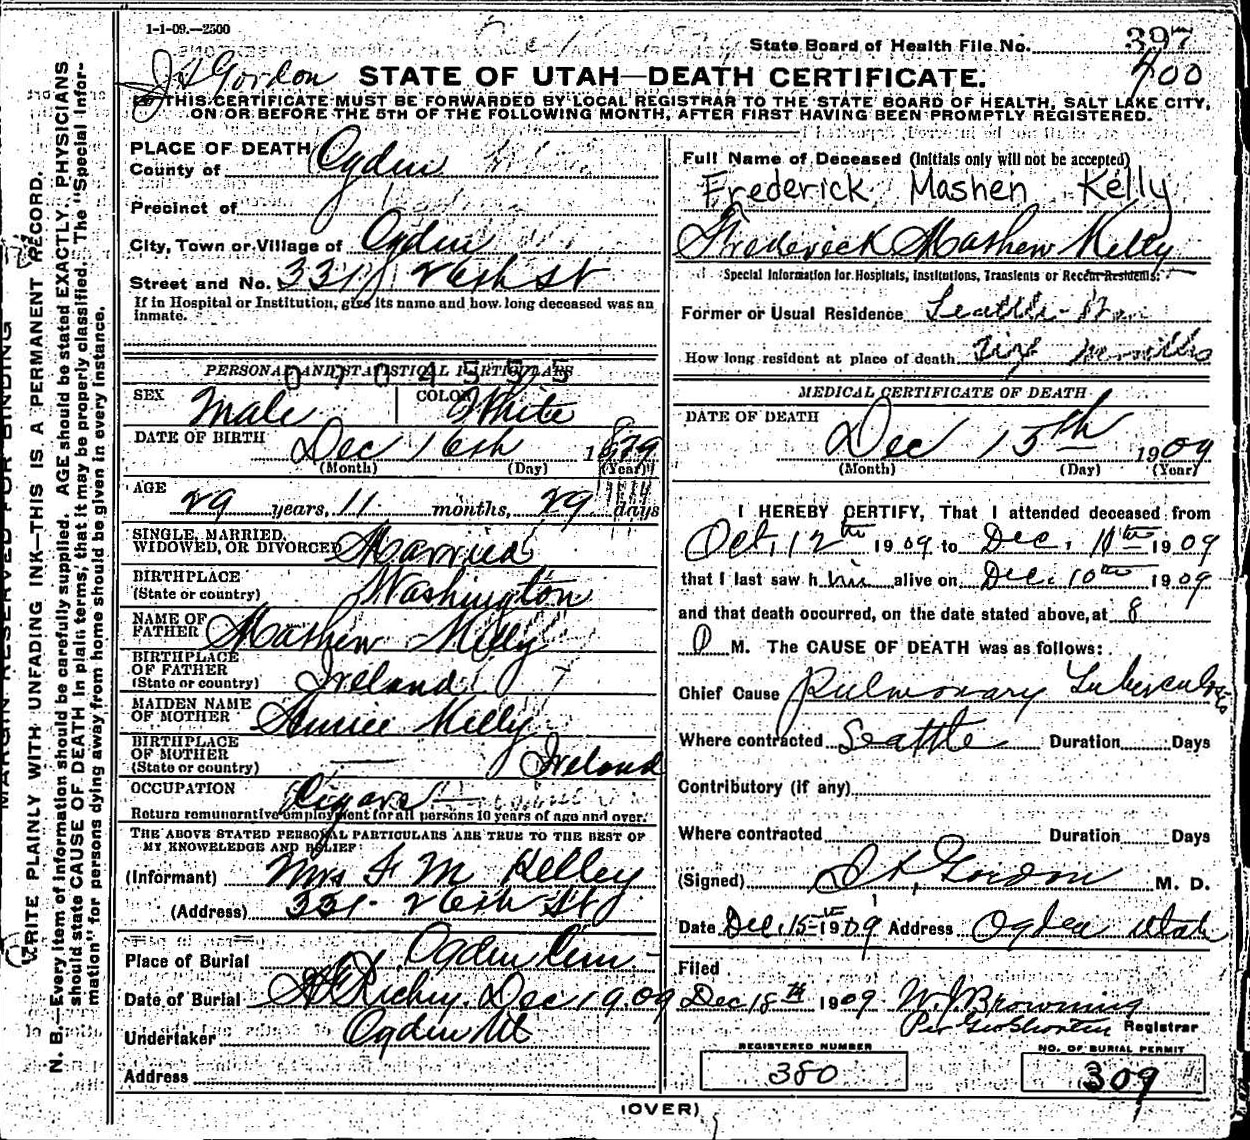 1-1-09.—2500
State Board of Health File No. 397
400
J H Gordon
STATE OF UTAH—DEATH CERTIFICATE.
THIS CERTIFICATE MUST BE FORWARDED BY LOCAL REGISTRAR TO THE STATE BOARD OF HEALTH, SALT LAKE CITY,
ON OR BEFORE THE 5TH OF THE FOLLOWING MONTH, AFTER FIRST HAVING BEEN PROMPTLY REGISTERED.
MARGIN RESERVED FOR BINDING
WRITE PLAINLY WITH UNFADING INK—THIS IS A PERMANENT RECORD.
N. B.—Every item of information should be carefully supplied. AGE should be stated EXACTLY. PHYSICIANS
should state CAUSE OF DEATH in plain terms, that it may be properly classified. The "Special Infor-
mation" for persons dying away from home should be given in every instance.
PLACE OF DEATH
County of Ogden
Precinct of
City, Town or Village of Ogden
Street and No. 331 26th St
If in Hospital or Institution, give its name and how long deceased was an
inmate.
PERSONAL AND STATISTICAL PARTICULARS
0704555
SEX Male COLOR White
DATE OF BIRTH Dec 16th 1879
(Month) (Day) (Year)
AGE
29 years, 11 months, 29 days
SINGLE, MARRIED,
WIDOWED, OR DIVORCED Married
BIRTHPLACE
(State or country) Washington
NAME OF
FATHER Mathew Kelly
BIRTHPLACE
OF FATHER
(State or country) Ireland
MAIDEN NAME
OF MOTHER Kelly
BIRTHPLACE
OF MOTHER
(State or country) — Ireland
OCCUPATION Cigars
Return remunerative employment for all persons 10 years of age and over.
THE ABOVE STATED PERSONAL PARTICULARS ARE TRUE TO THE BEST OF
MY KNOWLEDGE AND BELIEF
(Informant) Mrs F M Kelley
(Address) 331- 26th St
Place of Burial Ogden Cem.
Date of Burial Dec 19.09
Undertaker Ogden Ut
Address
Full Name of Deceased (Initials only will not be accepted)
Frederick Mashen Kelly
Frederick Mathew Kelly
Special Information for Hospitals, Institutions, Transients or Recent Residents:
Former or Usual Residence Seattle
How long resident at place of death Six months
MEDICAL CERTIFICATE OF DEATH
DATE OF DEATH
Dec 15th 1909
(Month) (Day) (Year)
I HEREBY CERTIFY, That I attended deceased from
Oct, 12th 1909 to Dec. 10th 1909
that I last saw him alive on Dec. 10th 1909
and that death occurred, on the date stated above, at 8
M. The CAUSE OF DEATH was as follows:
Chief Cause Pulmonary Tuberculosis
Where contracted Seattle Duration Days
Contributory (if any)
Where contracted Duration Days
(Signed) J H, Gordon M. D.
Date Dec. 15th 1909 Address Ogden Utah
Filed
Dec 18th 1909 W. J. Browning
Per Geo Shorten Registrar
REGISTERED NUMBER
380
NO. OF BURIAL PERMIT
309
(OVER)